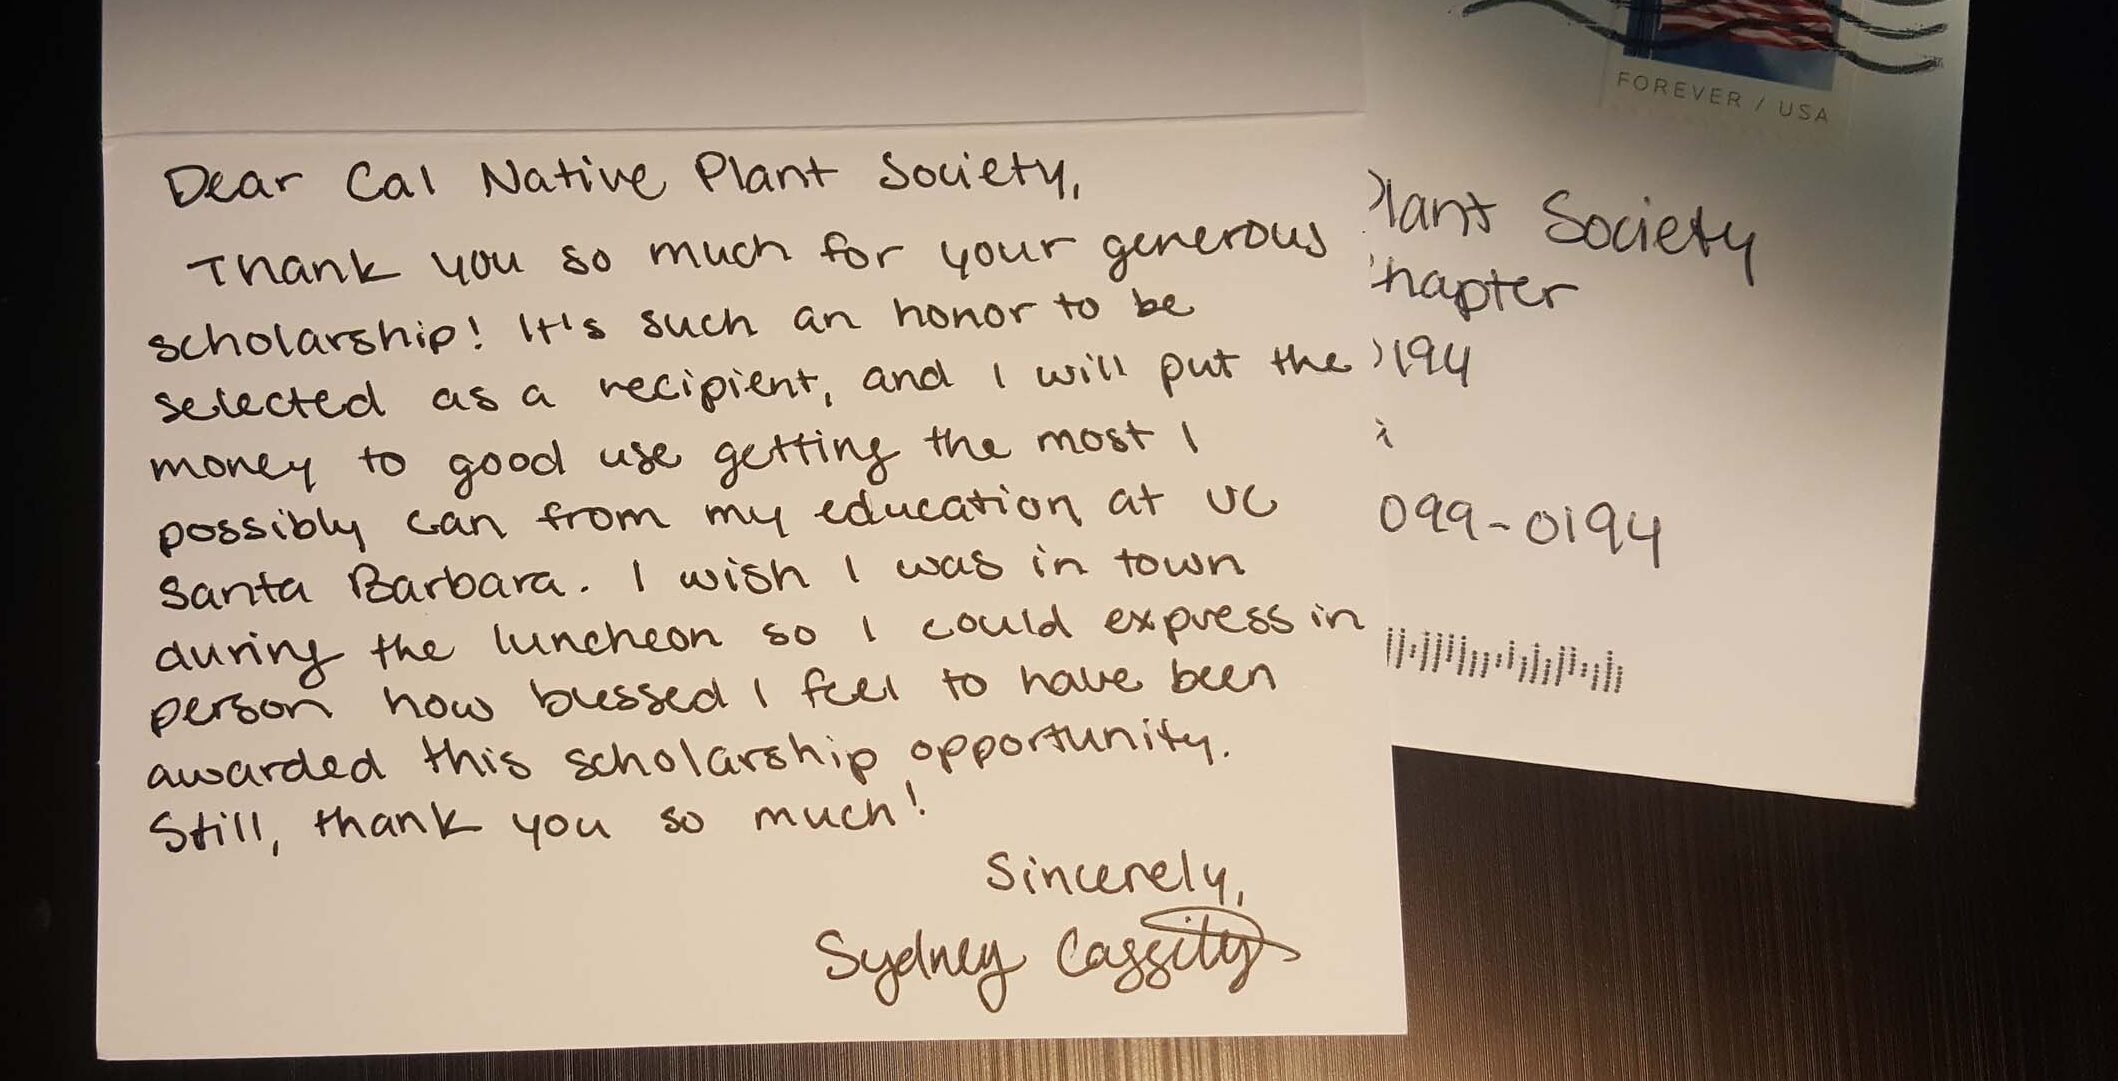 Dear Cal Native Plant Society,
Thank you so much for your generous
scholarship! It's such an honor to be
selected as a recipient, and I will put the
money to good use getting the most I
possibly can from my education at UC
Santa Barbara. I wish I was in town
during the luncheon so I could express in
person how blessed I feel to have been
awarded this scholarship opportunity.
Still, thank you so much!
Sincerely,
Sydney Cassity
FOREVER / USA
Plant Society
Chapter
0194
i
099-0194